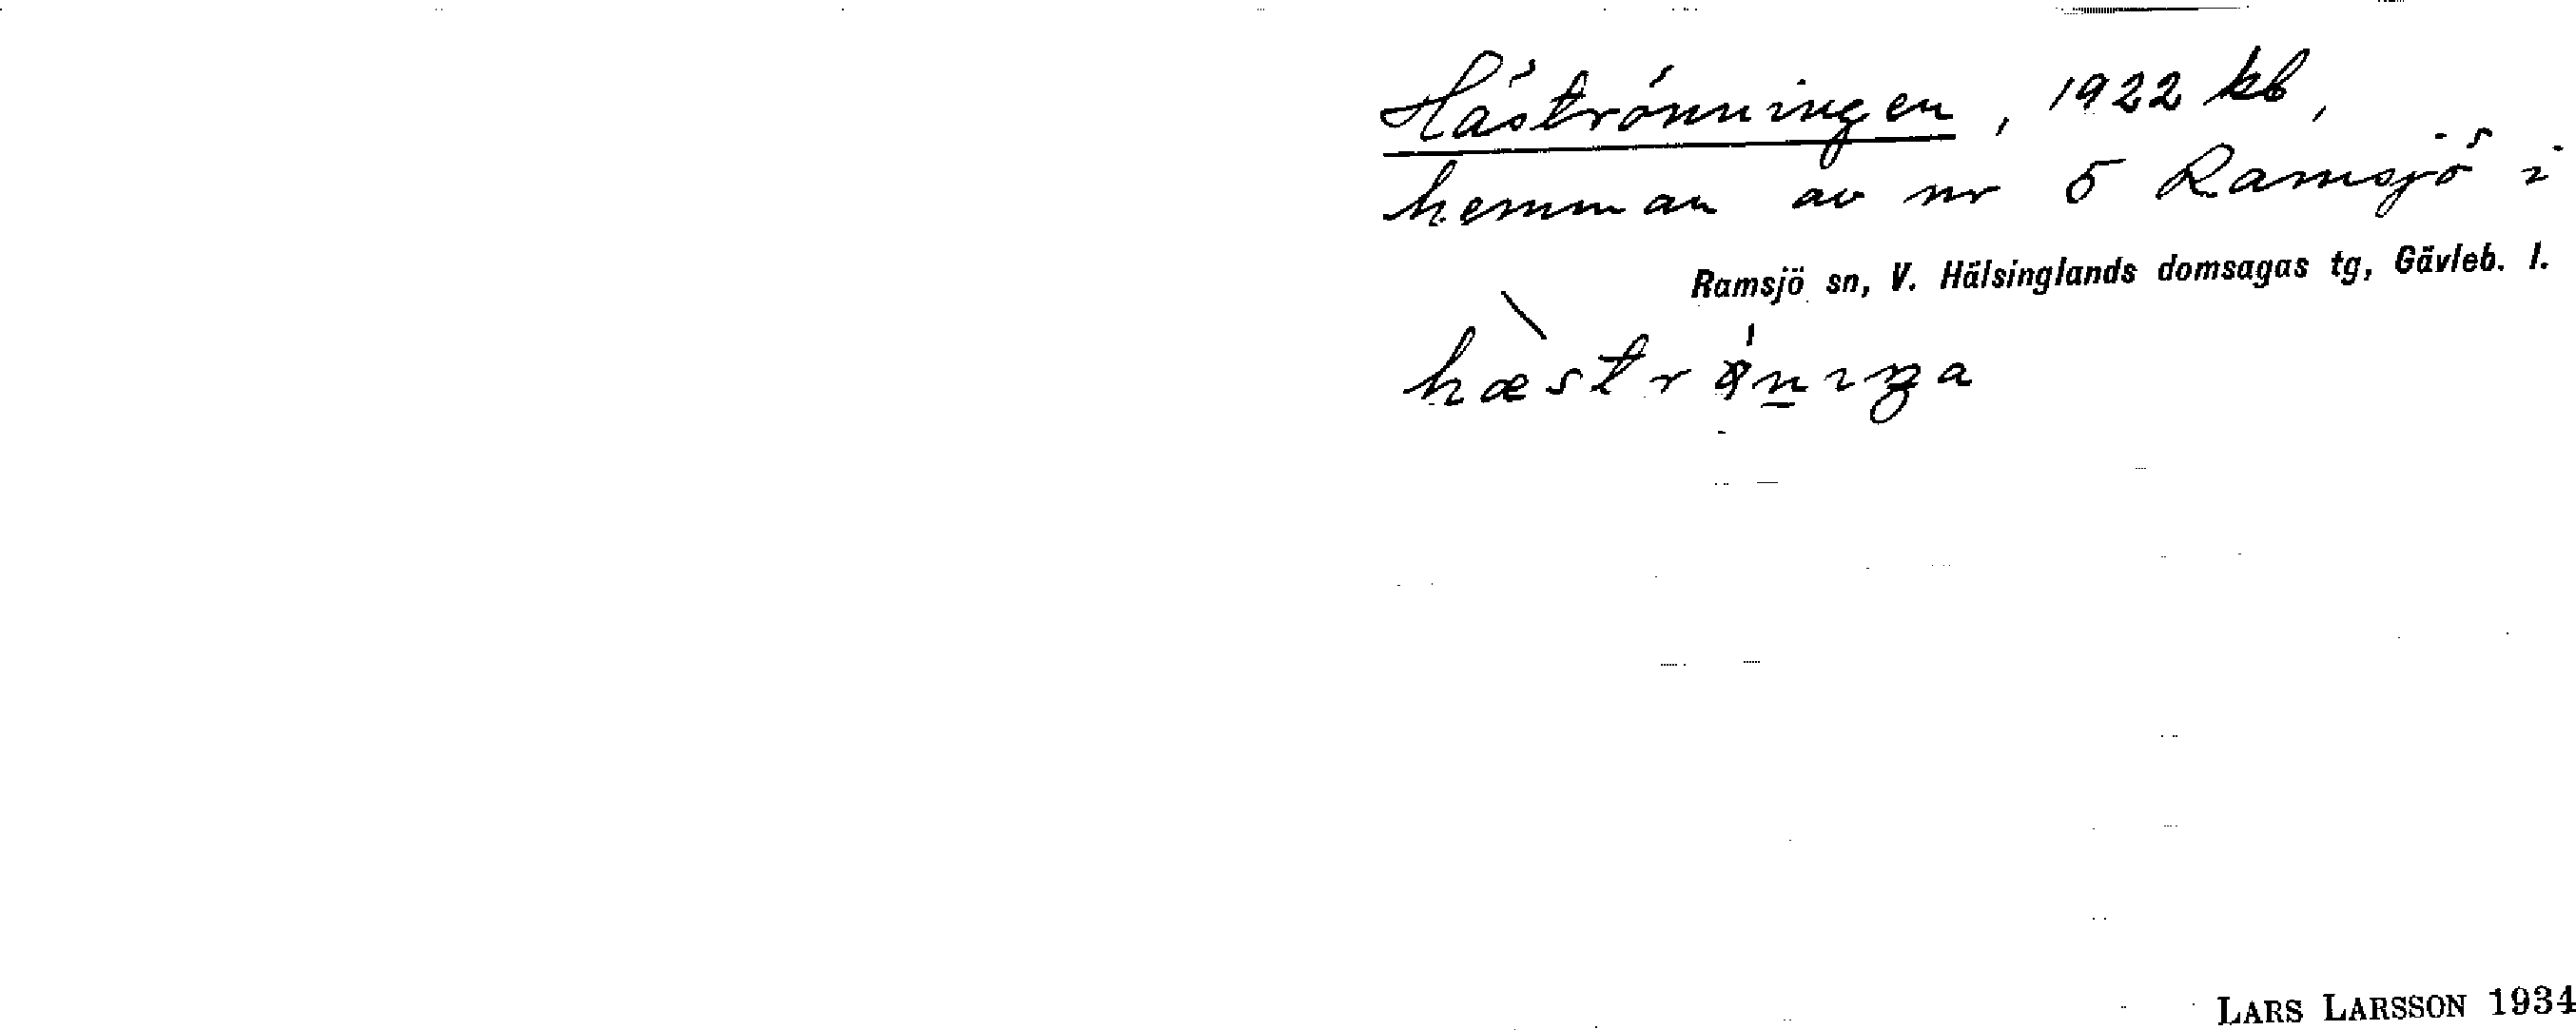 Häströnningen, 1922 kb,
hemman av nr 5 Ramsjö i
Ramsjö sn, V. Hälsinglands domsagas tg, Gävleb. l.
LARS LARSSON 1934